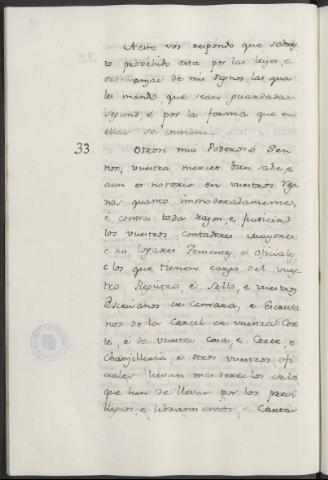 A esto vos respondo que sobre
to provehido esta por las leyes, e
ordenanzas de mis Regnos, las qua
les mando, que sean guardadas
segund, e por la forma que en
ellas se contiene.
33. Otrosi mui Poderoso Sen
nor, vuestra merced bien sabe, e
aun es notorio en vuestros Reg
nos quanto immoderadamente,
e contra toda razon, e justicia
los vuestros contadores Mayores
e su logares Tenientes, e oficiales
e los que tienen cargo del vues
tro Registro, e Sello, e vuestros
Escribanos de camara, e Escriva
nos de la Carcel en vuestra Cor
te, e de vuestra Casa, e Corte, e
Chanzilleria e otros vuestros ofi
ciales llevan mas derechos de lo
que han de llevar por los previ
llegios, e libramientos, e Cartas